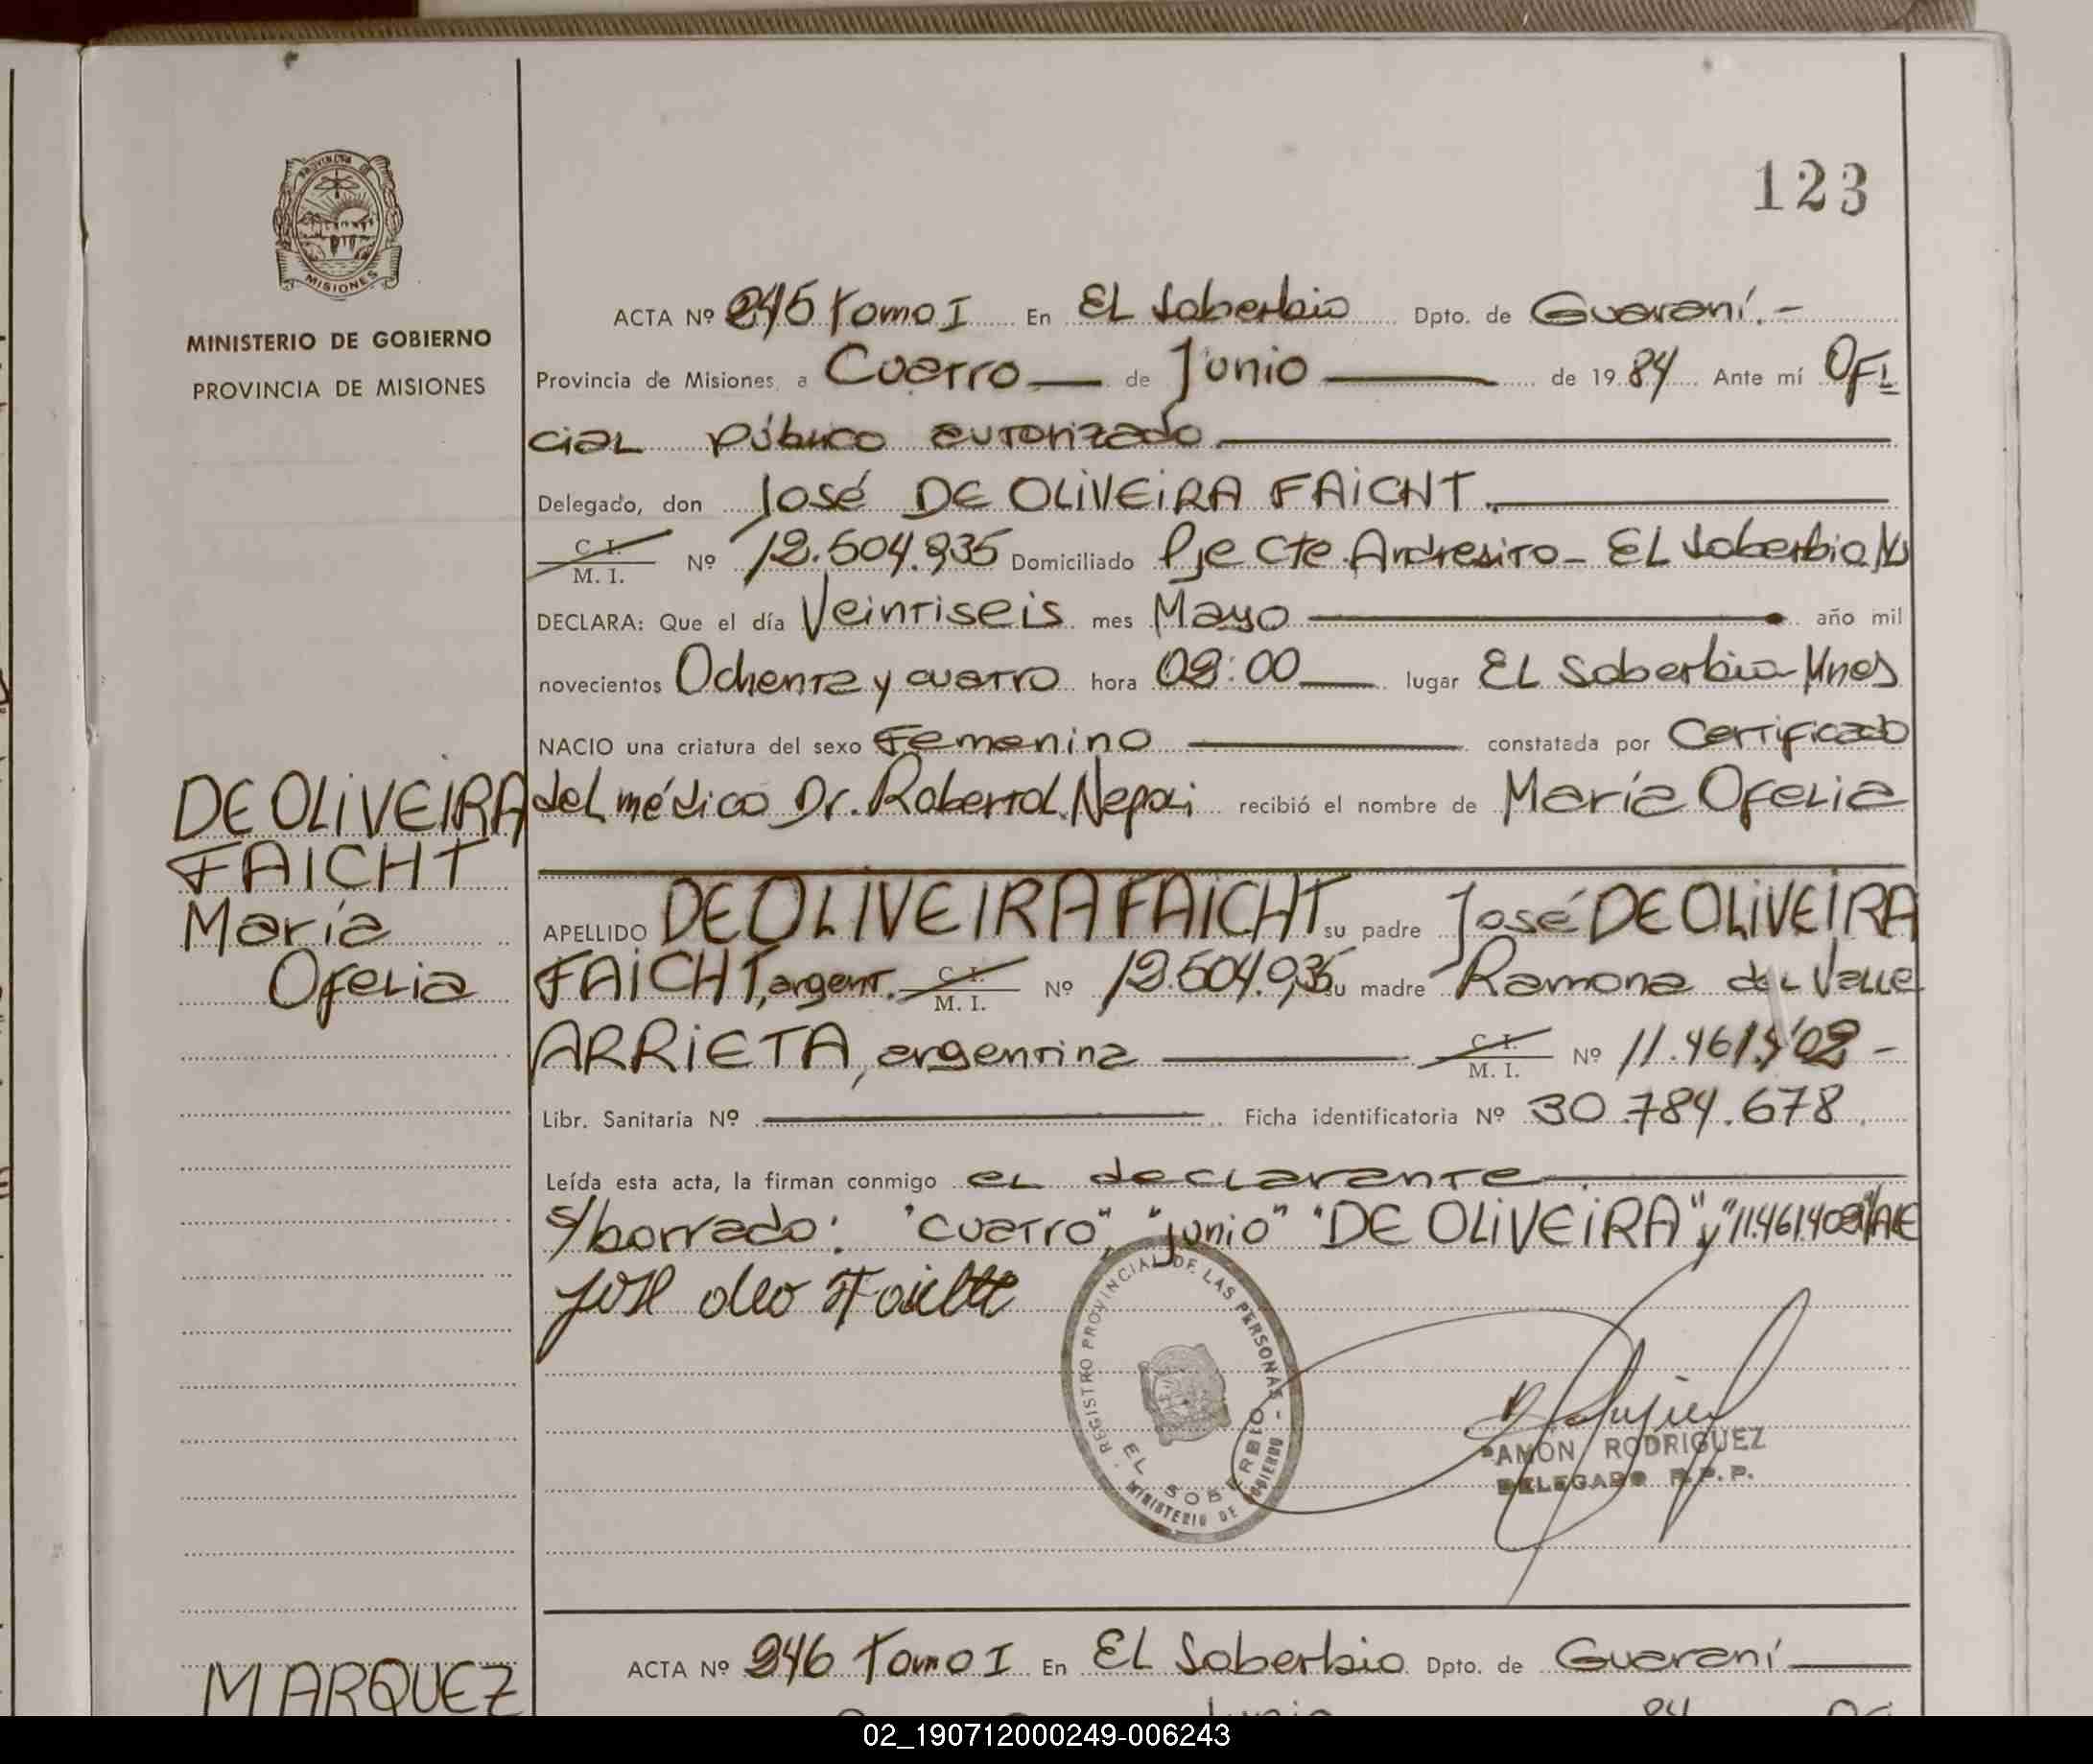 123
MINISTERIO DE GOBIERNO
PROVINCIA DE MISIONES
ACTA Nº 245 Tomo I En EL Soberbio Dpto. de Guaraní.-
Provincia de Misiones, a Cuatro de Junio de 1984 Ante mí Ofi
cial público autorizado
Delegado, don José DE OLiVEiRA FAiCHT.
C. I. M. I. Nº 12.504.935 Domiciliado Pje Cte. Andresito - EL Soberbio
DECLARA: Que el día Veintiseis mes Mayo año mil
novecientos Ochenta y cuatro hora 02:00 lugar EL Soberbio - Mnes
NACIO una criatura del sexo Femenino constatada por Certificado
del médico Dr. Roberto L. recibió el nombre de María Ofelia
APELLIDO DE OLIVEIRA FAICHT su padre José DE OLIVEIRA
FAiCHT, argent. C. I. M. I. Nº 12.504.935 su madre Ramona del Valle
ARRiETA, argentina C. I. M. I. Nº 11.461.402 -
Libr. Sanitaria Nº Ficha identificatoria Nº 30.784.678
Leída esta acta, la firman conmigo el declarante
s/borrado: "Cuatro", "junio" "DE OLiVEiRA" y "11.461.402"
DE OLiVEIRA
FAICHT
María
Ofelia
REGISTRO PROVINCIAL DE LAS PERSONAS - MINISTERIO DE GOBIERNO
EL SOBERBIO
RAMON RODRIGUEZ
DELEGADO R.P.P.
ACTA Nº 246 Tomo I En EL Soberbio Dpto. de Guaraní
MARQUEZ
02_190712000249-006243